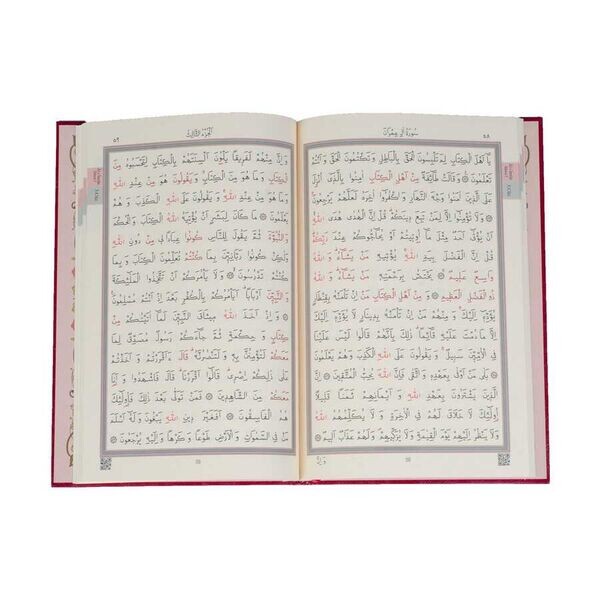 سُورَةُ اٰلِ عِمْرَانَ ٥٨
يَٓا اَهْلَ الْكِتَابِ لِمَ تَلْبِسُونَ الْحَقَّ بِالْبَاطِلِ وَ تَكْتُمُونَ الْحَقَّ وَ اَنْتُمْ
تَعْلَمُونَ ۞ وَ قَالَتْ طَٓائِفَةٌ مِنْ اَهْلِ الْكِتَابِ اٰمِنُوا بِالَّذِٓي اُنْزِلَ
عَلَى الَّذِينَ اٰمَنُوا وَجْهَ النَّهَارِ وَ اكْفُرُٓوا اٰخِرَهُ لَعَلَّهُمْ يَرْجِعُونَ ۞
وَ لَا تُؤْمِنُٓوا اِلَّا لِمَنْ تَبِعَ دِينَكُمْ قُلْ اِنَّ الْهُدٰى هُدَى اللّٰهِ
اَنْ يُؤْتٰٓى اَحَدٌ مِثْلَ مَٓا اُوتِيتُمْ اَوْ يُحَٓاجُّوكُمْ عِنْدَ رَبِّكُمْ
قُلْ اِنَّ الْفَضْلَ بِيَدِ اللّٰهِ يُؤْتِيهِ مَنْ يَشَٓاءُ وَ اللّٰهُ
وَاسِعٌ عَلِيمٌ ۞ يَخْتَصُّ بِرَحْمَتِهِ مَنْ يَشَٓاءُ وَ اللّٰهُ
ذُو الْفَضْلِ الْعَظِيمِ ۞ وَ مِنْ اَهْلِ الْكِتَابِ مَنْ اِنْ تَأْمَنْهُ بِقِنْطَارٍ
يُؤَدِّهِٓ اِلَيْكَ وَ مِنْهُمْ مَنْ اِنْ تَأْمَنْهُ بِدِينَارٍ لَا يُؤَدِّهِٓ اِلَيْكَ
اِلَّا مَا دُمْتَ عَلَيْهِ قَٓائِمًا ذٰلِكَ بِاَنَّهُمْ قَالُوا لَيْسَ عَلَيْنَا
فِي الْاُمِّيِّنَ سَبِيلٌ وَ يَقُولُونَ عَلَى اللّٰهِ الْكَذِبَ وَ هُمْ يَعْلَمُونَ
۞ بَلٰى مَنْ اَوْفٰى بِعَهْدِهِ وَ اتَّقٰى فَاِنَّ اللّٰهَ يُحِبُّ الْمُتَّقِينَ ۞ اِنَّ
الَّذِينَ يَشْتَرُونَ بِعَهْدِ اللّٰهِ وَ اَيْمَانِهِمْ ثَمَنًا قَلِيلًا
اُولٰٓئِكَ لَا خَلَاقَ لَهُمْ فِي الْاٰخِرَةِ وَ لَا يُكَلِّمُهُمُ اللّٰهُ
وَ لَا يَنْظُرُ اِلَيْهِمْ يَوْمَ الْقِيٰمَةِ وَ لَا يُزَكِّيهِمْ وَ لَهُمْ عَذَابٌ اَلِيمٌ ۞
وَ اِنَّ
اَلْجُزْءُ الثَّالِثُ ٥٩
وَ اِنَّ مِنْهُمْ لَفَرِيقًا يَلْوُنَ اَلْسِنَتَهُمْ بِالْكِتَابِ لِتَحْسَبُوهُ مِنَ
الْكِتَابِ وَ مَا هُوَ مِنَ الْكِتَابِ وَ يَقُولُونَ هُوَ مِنْ عِنْدِ اللّٰهِ
وَ مَا هُوَ مِنْ عِنْدِ اللّٰهِ وَ يَقُولُونَ عَلَى اللّٰهِ الْكَذِبَ وَ هُمْ
يَعْلَمُونَ ۞ مَا كَانَ لِبَشَرٍ اَنْ يُؤْتِيَهُ اللّٰهُ الْكِتَابَ وَ الْحُكْمَ
وَ النُّبُوَّةَ ثُمَّ يَقُولَ لِلنَّاسِ كُونُوا عِبَادًا لِي مِنْ دُونِ اللّٰهِ
وَ لٰكِنْ كُونُوا رَبَّانِيِّنَ بِمَا كُنْتُمْ تُعَلِّمُونَ الْكِتَابَ وَ بِمَا
كُنْتُمْ تَدْرُسُونَ ۞ وَ لَا يَأْمُرَكُمْ اَنْ تَتَّخِذُوا الْمَلٰٓئِكَةَ
وَ النَّبِيِّنَ اَرْبَابًا اَيَأْمُرُكُمْ بِالْكُفْرِ بَعْدَ اِذْ اَنْتُمْ مُسْلِمُونَ
۞ وَ اِذْ اَخَذَ اللّٰهُ مِيثَاقَ النَّبِيِّنَ لَمَٓا اٰتَيْتُكُمْ مِنْ
كِتَابٍ وَ حِكْمَةٍ ثُمَّ جَٓاءَكُمْ رَسُولٌ مُصَدِّقٌ لِمَا
مَعَكُمْ لَتُؤْمِنُنَّ بِهِ وَ لَتَنْصُرُنَّهُ قَالَ ءَاَقْرَرْتُمْ وَ اَخَذْتُمْ
عَلٰى ذٰلِكُمْ اِصْرِي قَالُٓوا اَقْرَرْنَا قَالَ فَاشْهَدُوا وَ اَنَا
مَعَكُمْ مِنَ الشَّاهِدِينَ ۞ فَمَنْ تَوَلّٰى بَعْدَ ذٰلِكَ فَاُولٰٓئِكَ
هُمُ الْفَاسِقُونَ ۞ اَفَغَيْرَ دِينِ اللّٰهِ يَبْغُونَ وَ لَهُٓ اَسْلَمَ
مَنْ فِي السَّمٰوَاتِ وَ الْاَرْضِ طَوْعًا وَ كَرْهًا وَ اِلَيْهِ يُرْجَعُونَ ۞